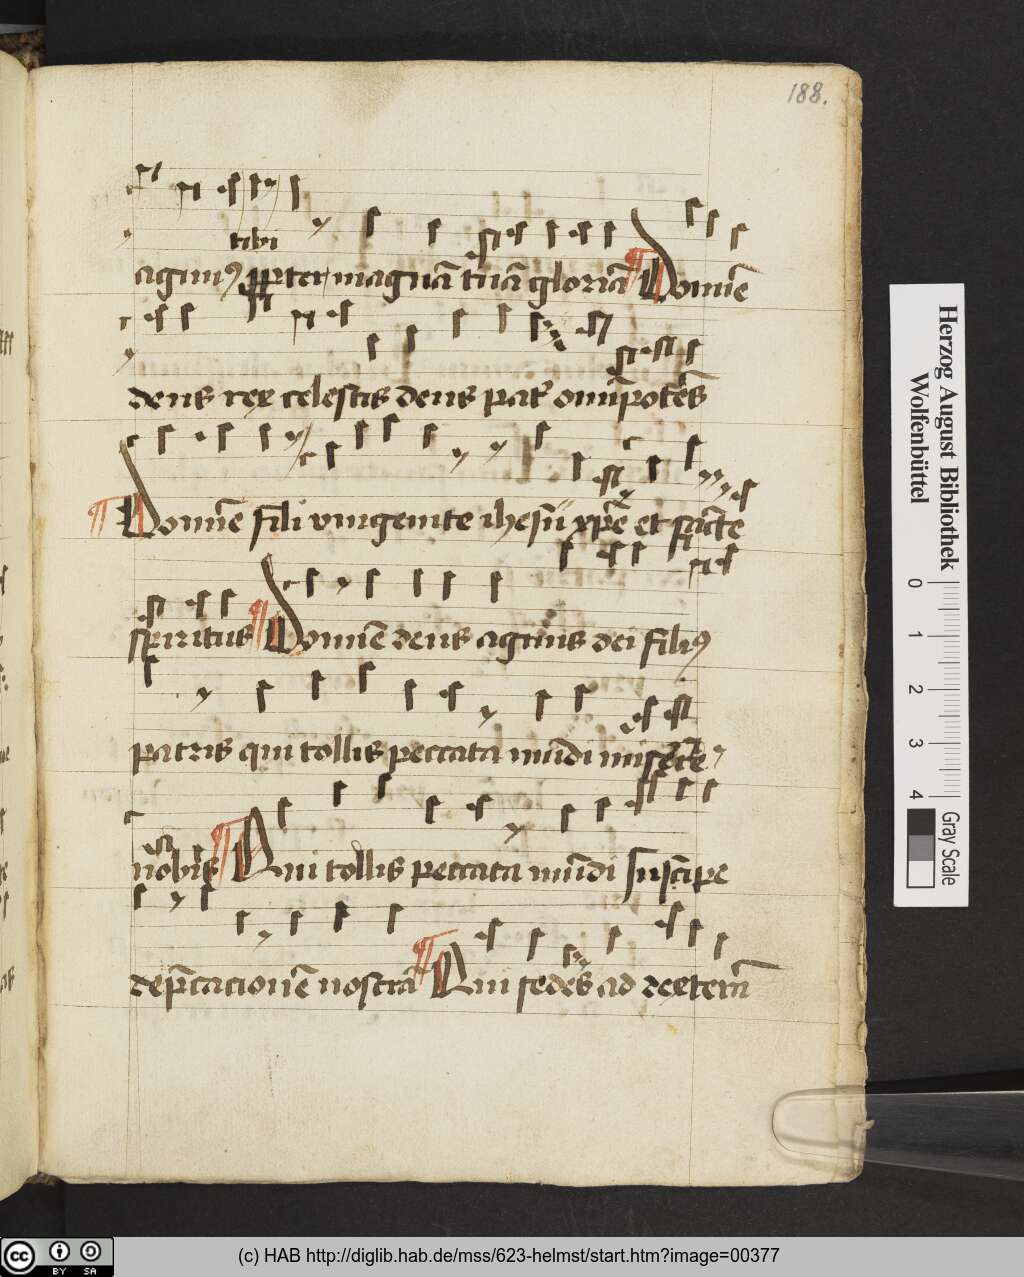 188.
tibi
agim9 ꝓpter magnā tuā gloriā Domīe
deus rex celestis deus pat᷑ omīpotēs
Domīe fili vnigenite ihesū xp̄e et sācte
spiritus Domīe deus agnus dei fili9
patris qui tollis peccata mūdi miserere
nobis Qui tollis peccata mūdi suscipe
dep̄cacionē nostrā Qui sedes ad dexterā
Herzog August Bibliothek
Wolfenbüttel
0 1 2 3 4
Gray Scale
cc BY SA
(c) HAB http://diglib.hab.de/mss/623-helmst/start.htm?image=00377